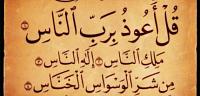 قُلْ أَعُوذُ بِرَبِّ النَّاسِ
مَلِكِ النَّاسِ إِلَٰهِ النَّاسِ
مِن شَرِّ الْوَسْوَاسِ الْخَنَّاسِ